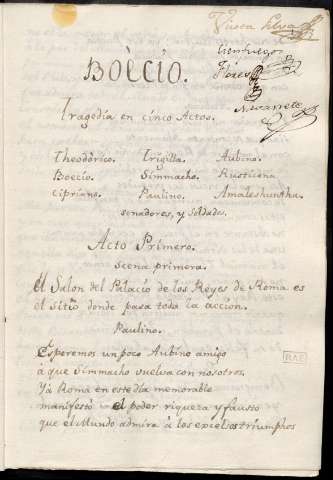 Viera Silva
Cienfuegos
Flores
Navarrete
Boècio.
Tragedia en cinco Actos.
Theodòrico. Trigilla. Aubino.
Boecio. Simmacho. Rusticena
Cipriano. Paulino. Amaleshuntha.
senadores, y Soldads.
Acto Primero.
scena primera.
El Salon del Palacio de los Reyes de Roma es
el sitio donde pasa toda la accion.
Paulino.
Esperemos un poco Aubino amigo
à que Simmacho vuelva con nosotros,
Yà Roma en este dia memorable
manifestò el poder riqueza y fausto
que el Mundo admira à los excelsos triumphos
RAE